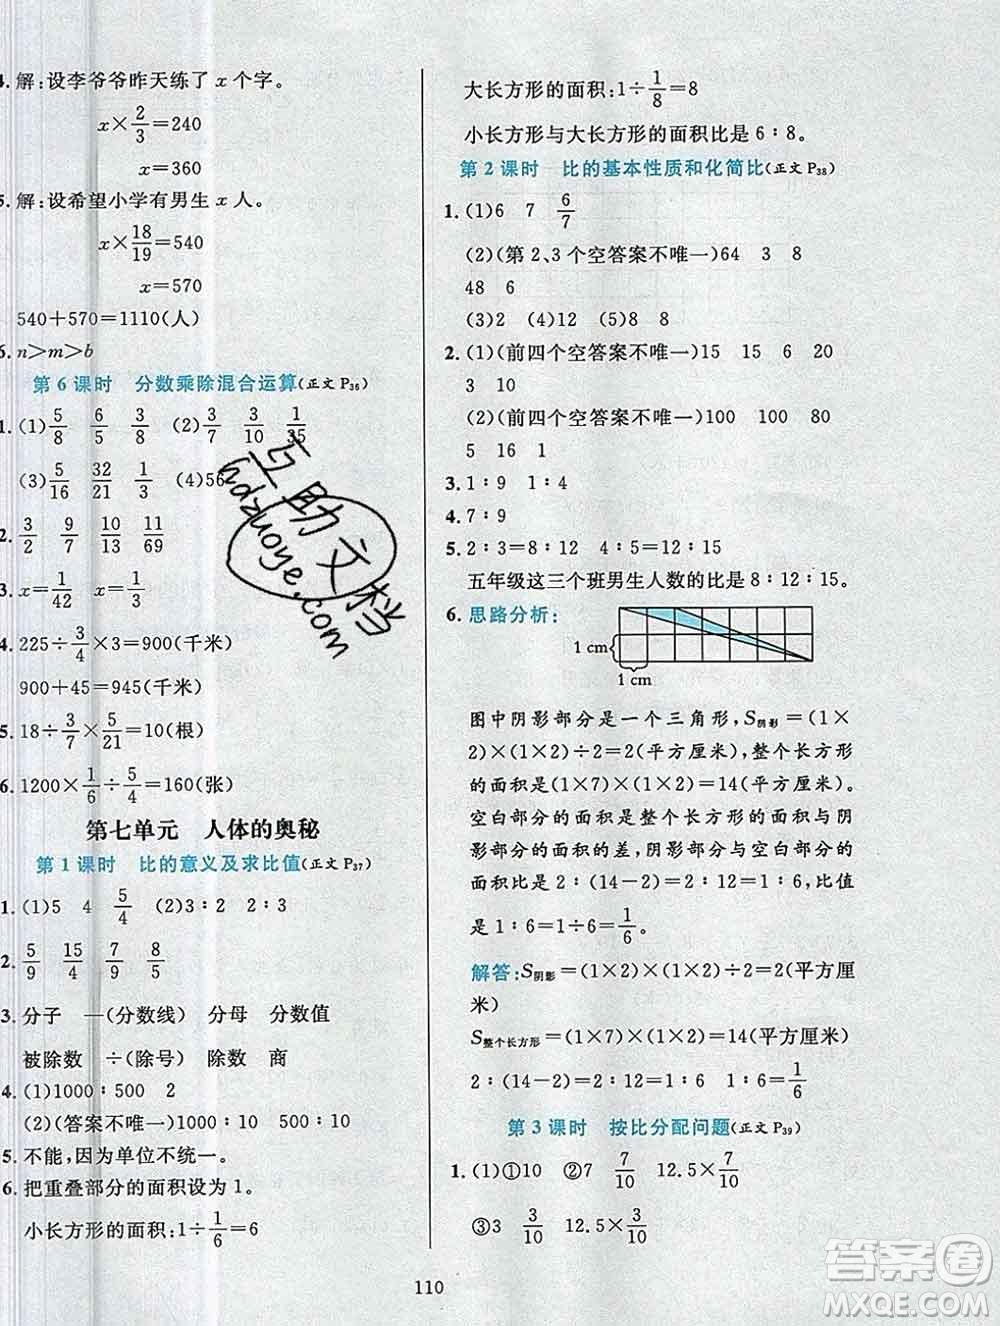 4. 解:设李爷爷昨天练了 x 个字。
x×2/3=240
x=360
5. 解:设希望小学有男生 x 人。
x×18/19=540
x=570
540+570=1110(人)
6. n>m>b
第 6 课时 分数乘除混合运算(正文 P36)
1. (1)5/8 6/5 3/8 (2)3/7 3/10 1/35
(3)5/16 32/21 1/3 (4)56
2. 3/2 9/7 10/13 11/69
3. x=1/42 x=3/4
4. 225÷3/4×3=900(千米)
900+45=945(千米)
5. 18÷3/7×5/21=10(根)
6. 1200×1/6÷5/4=160(张)
第七单元 人体的奥秘
第 1 课时 比的意义及求比值(正文 P37)
1. (1)5 4 5/4 (2)3∶2 2∶3
2. 5/9 15/4 7/9 8/5
3. 分子 —(分数线) 分母 分数值
被除数 ÷(除号) 除数 商
4. (1)1000∶500 2
(2)(答案不唯一)1000∶10 500∶10
5. 不能,因为单位不统一。
6. 把重叠部分的面积设为 1。
小长方形的面积:1÷1/6=6
大长方形的面积:1÷1/8=8
小长方形与大长方形的面积比是 6∶8。
第 2 课时 比的基本性质和化简比(正文 P38)
1. (1)6 7 6/7
(2)(第 2、3 个空答案不唯一)64 3 8
48 6
(3)2 (4)12 8 8
2. (1)(前四个空答案不唯一)15 15 6 20
3 10
(2)(前四个空答案不唯一)100 100 80
5 16 1
3. 1∶9 1∶4
4. 7∶9
5. 2∶3=8∶12 4∶5=12∶15
五年级这三个班男生人数的比是 8∶12∶15。
6. 思路分析:
1 cm
1 cm
图中阴影部分是一个三角形,S阴影=(1×
2)×(1×2)÷2=2(平方厘米),整个长方形
的面积是(1×7)×(1×2)=14(平方厘米)。
空白部分的面积是整个长方形的面积与阴
影部分的面积的差,阴影部分与空白部分的
面积比是 2∶(14-2)=2∶12=1∶6,比值
是 1∶6=1÷6=1/6。
解答:S阴影=(1×2)×(1×2)÷2=2(平方厘
米)
S整个长方形=(1×7)×(1×2)=14(平方厘米)
2∶(14-2)=2∶12=1∶6=1÷6=1/6
第 3 课时 按比分配问题(正文 P39)
1. (1)①10 ②7 7/10 12.5×7/10
③3 3/10 12.5×3/10
110
互助文档
hdzuoye.com
答案圈
MXQE.COM